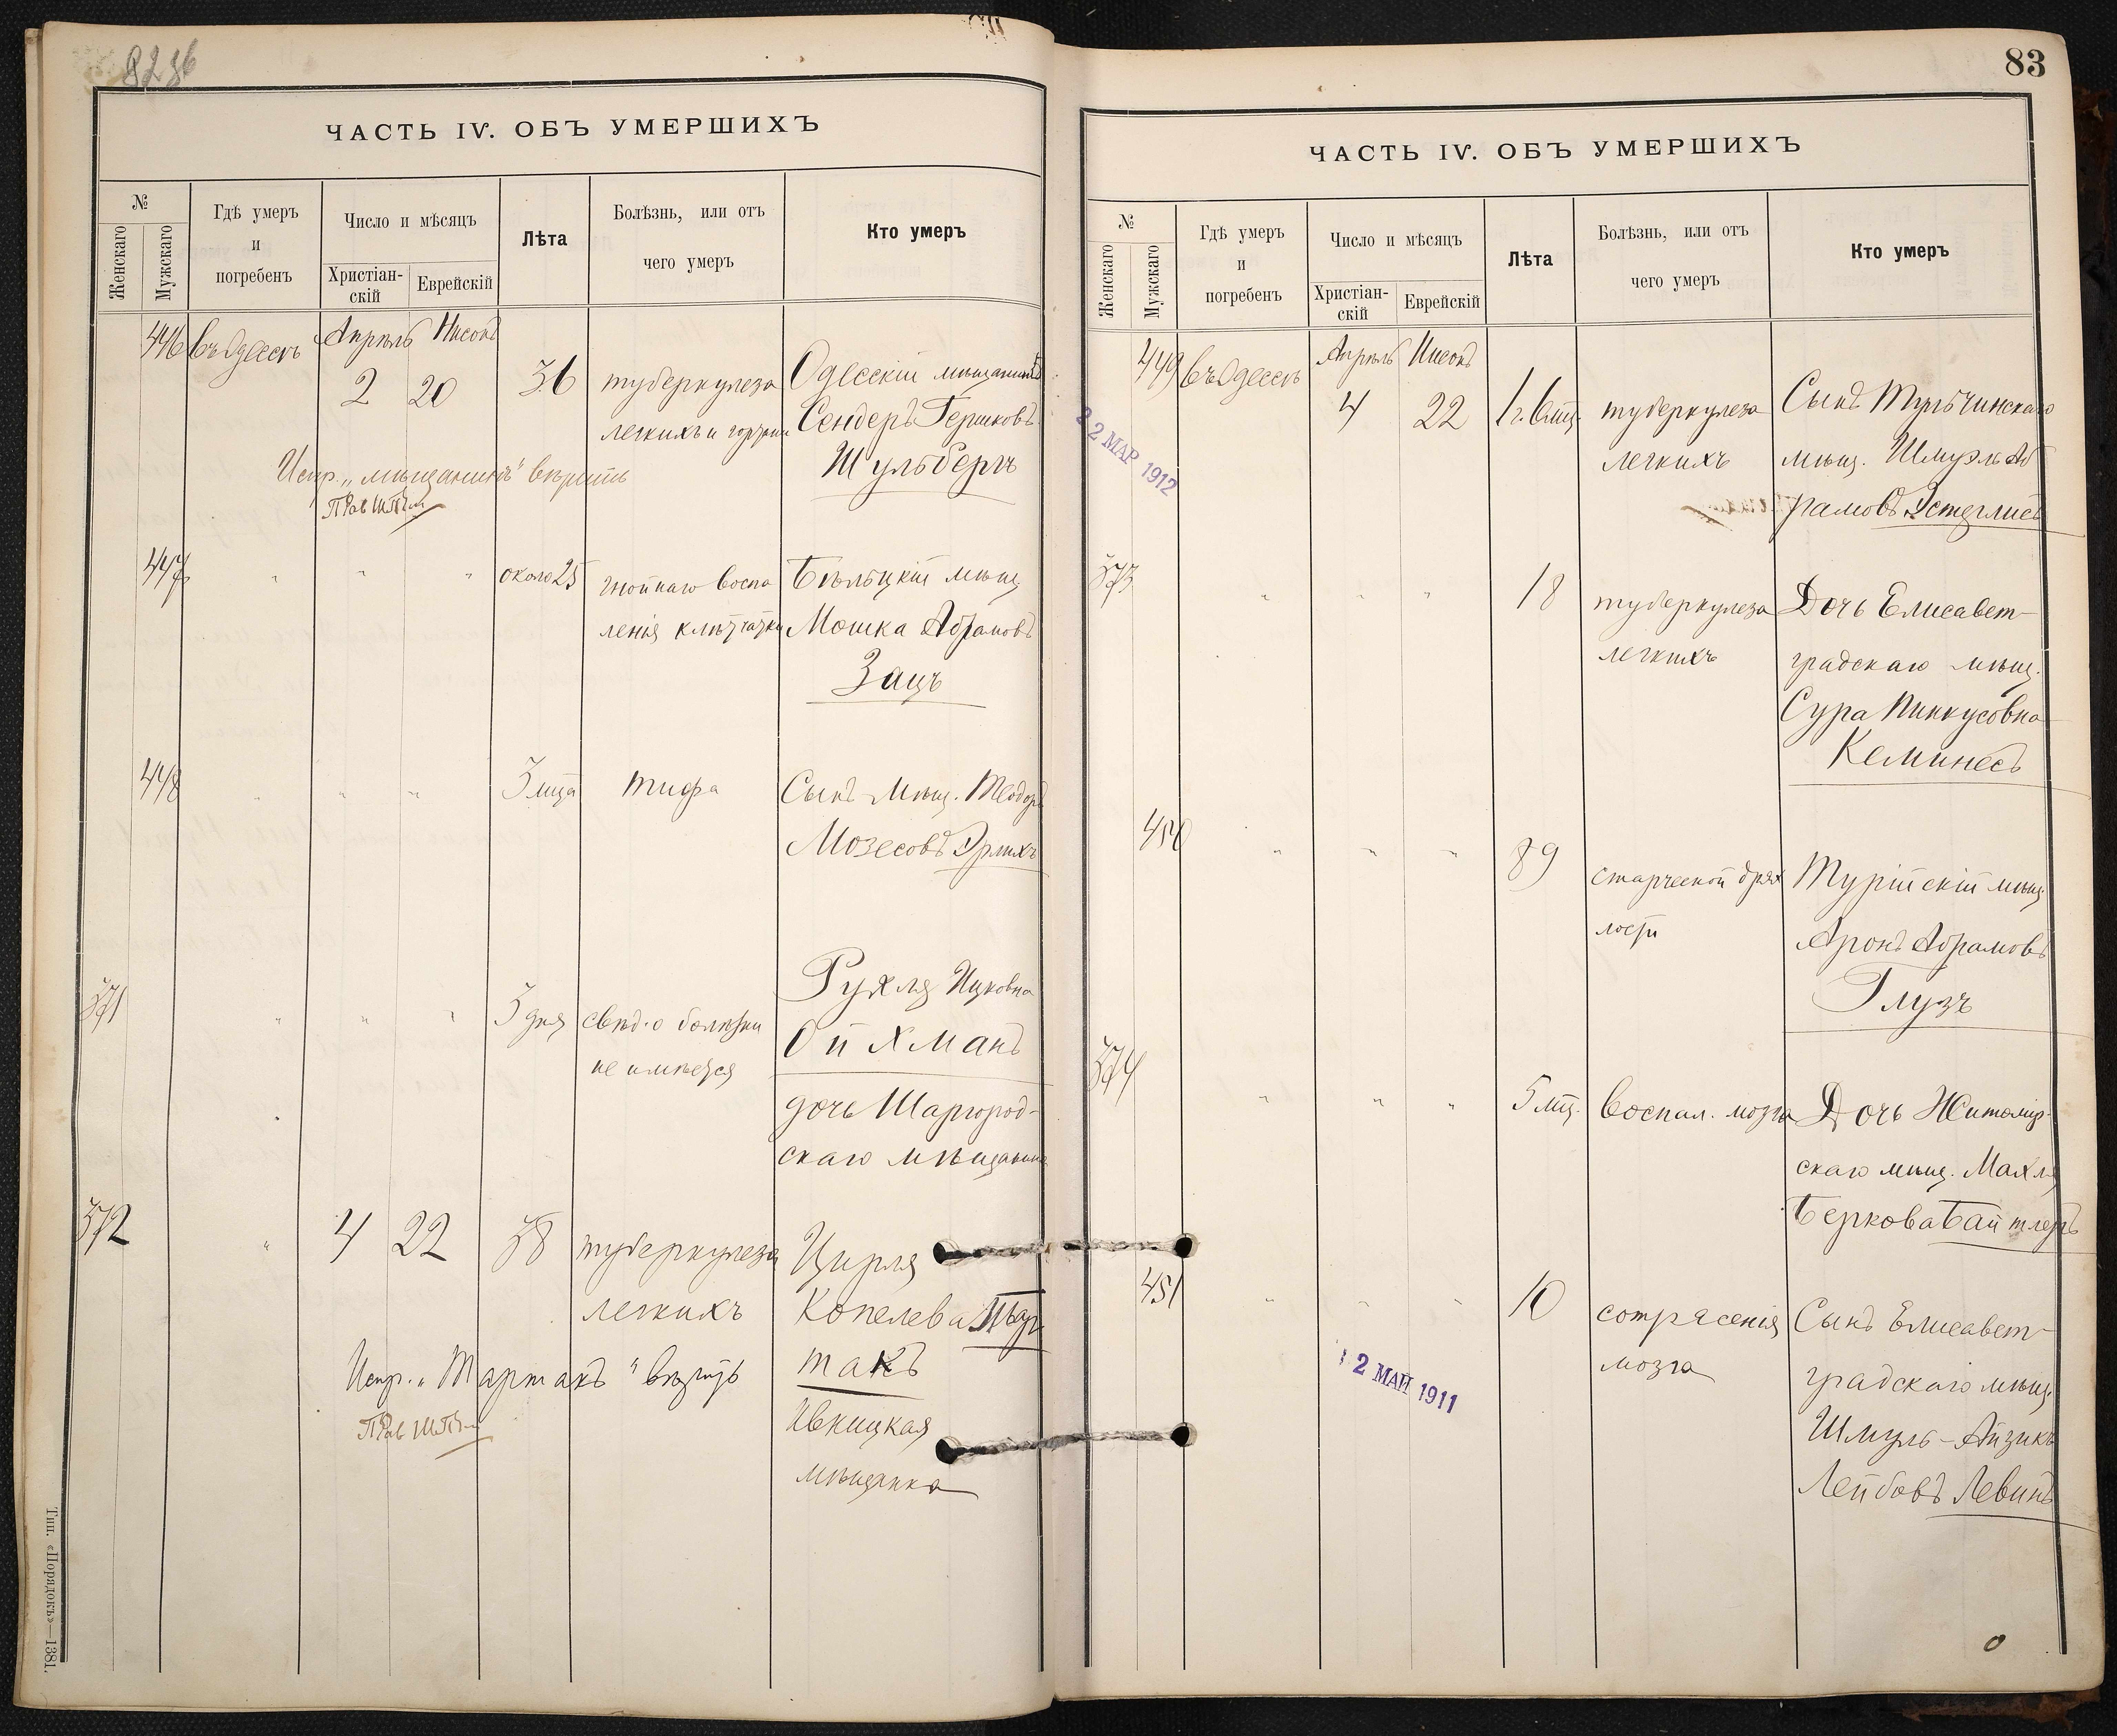 82 зб
ЧАСТЬ IV. ОБЪ УМЕРШИХЪ
№
Женскаго
Мужскаго
Гдѣ умеръ
и
погребенъ
Число и мѣсяцъ
Христіан-
скій
Еврейскій
Лѣта
Болѣзнь, или отъ
чего умеръ
Кто умеръ
446 въ Одессѣ Апрѣль Нисонъ
2 20 36 туберкулеза Одесскій мѣщанинъ
легкихъ и гортани Сендеръ Гершковъ
Шульбергъ
Испр. „мѣщанинъ" вѣрить
447 " " " около 25 гнойнаго воспа Бѣльцкій мѣщ.
ленія клѣтчатки Мошка Абрамовъ
Зацъ
448 " " " 3 мца тифа Сынъ мѣщ. Теодоръ
Мозесовъ Эрлихъ
Рухля Ицковна
371 " " " 3 дня свѣд. о болѣзни
Ойхманъ
не имѣется
дочь Шаргород-
скаго мѣщанина
372 " 4 22 38 туберкулеза Цирля
легкихъ Копелева Тар
такъ
Испр. „Тартакъ" вѣрить
Ивницкая
мѣщанка
Тип. «Порядокъ»—1381.
83
ЧАСТЬ IV. ОБЪ УМЕРШИХЪ
№
Женскаго
Мужскаго
Гдѣ умеръ
и
погребенъ
Число и мѣсяцъ
Христіан-
скій
Еврейскій
Лѣта
Болѣзнь, или отъ
чего умеръ
Кто умеръ
449 въ Одессѣ Апрѣль Нисонъ
4 22 1 г. 6 мц. туберкулеза Сынъ Тульчинскаго
легкихъ мѣщ. Шмуэль Аб
рамовъ Эстерлисъ
22 МАР 1912
373 " " " 18 туберкулеза Дочь Елисавет-
легкихъ градскаго мѣщ.
Сура Пинкусовна
Кеминесъ
450 " " " 89 старческой дрях Турійскій мѣщ.
лости Аронъ Абрамовъ
Глузъ
374 " " " 5 мц. воспал. мозга Дочь Житомір-
скаго мѣщ. Махля
Беркова Байтлеръ
451 " " " 10 сотрясенія Сынъ Елисавет-
мозга градскаго мѣщ.
Шмуль-Айзикъ
Лейбовъ Левинъ
2 МАЙ 1911